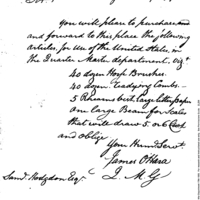 You will please to purchase and
and forward to this place the following
articles, for Use of the United States, in
the Quarter Master department, Vizt
40 dozen Horse Brushes
40 dozen
5 Reams best, large letter Paper
one large Beam for Scales
that will draw 5. or 6 Cwt
and oblige
Your Humb Servt
James OHara
Q. M G
Saml Hodgdon Esqr